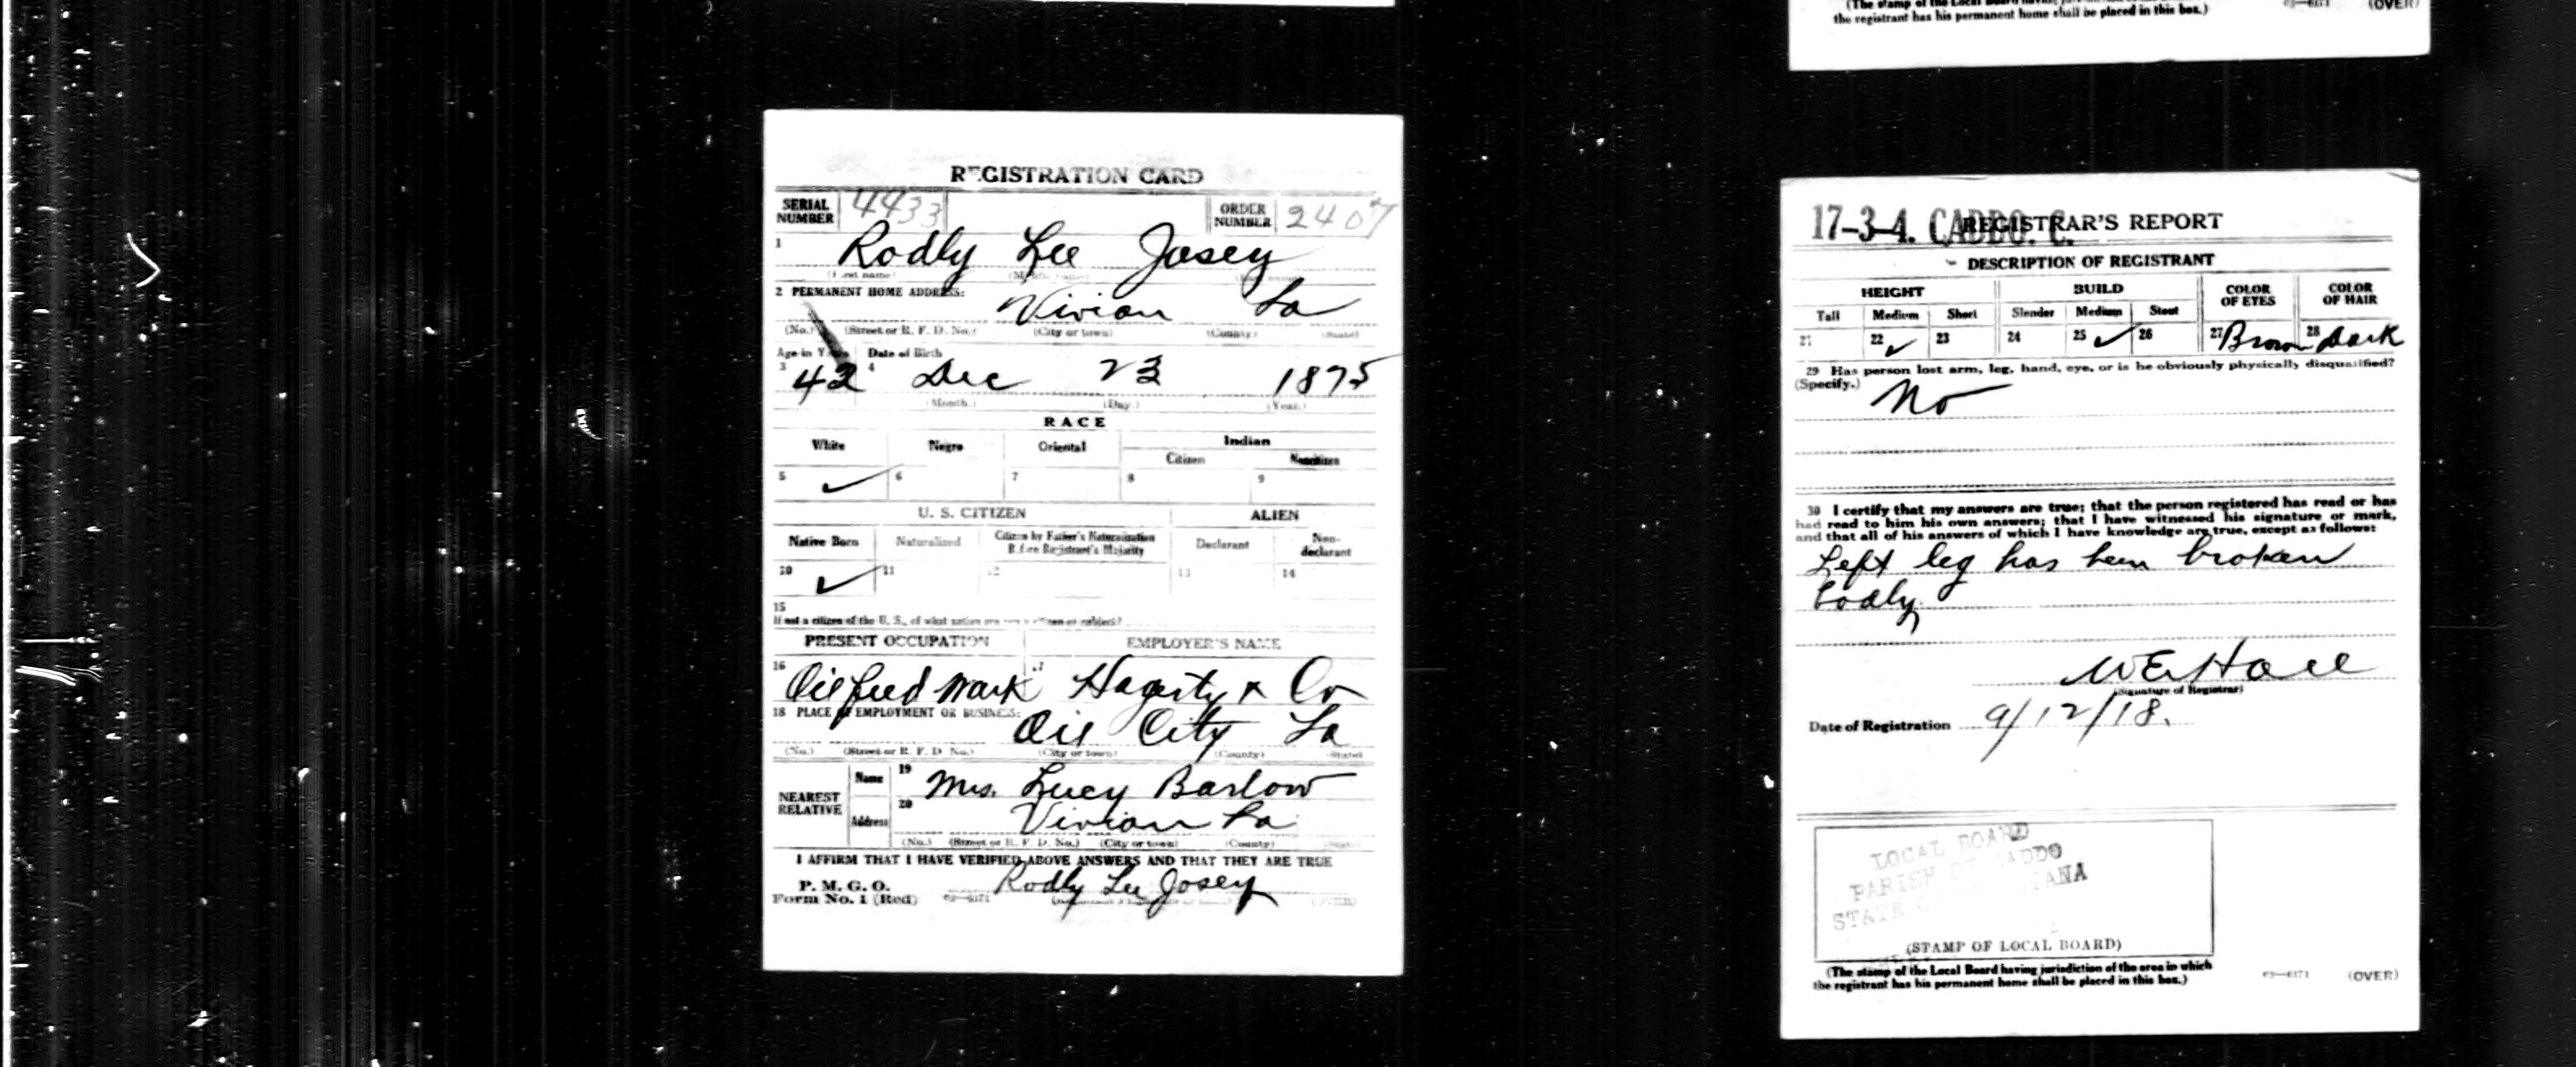 REGISTRATION CARD
SERIAL NUMBER 4433 ORDER NUMBER 2407
1 Rodly Lee Josey
(First name) (Middle name)
2 PERMANENT HOME ADDRESS: Vivian La
(No.) (Street or R. F. D. No.) (City or town) (County) (State)
Age in Years Date of Birth
3 42 4 Dec 23 1875
(Month.) (Day.) (Year.)
RACE
White Negro Oriental Indian
Citizen Noncitizen
5 ✓ 6 7 8 9
U. S. CITIZEN ALIEN
Native Born Naturalized Citizen by Father's Naturalization Before Registrant's Majority Declarant Non-declarant
10 ✓ 11 12 13 14
15
If not a citizen of the U. S., of what nation are you a citizen or subject?
PRESENT OCCUPATION EMPLOYER'S NAME
16 Oil feed Work 17 Hagerty & Co
18 PLACE OF EMPLOYMENT OR BUSINESS: Oil City La
(No.) (Street or R. F. D. No.) (City or town) (County) (State)
NEAREST RELATIVE Name 19 Mrs. Lucy Barlow
Address 20 Vivian La
(No.) (Street or R. F. D. No.) (City or town) (County) (State)
I AFFIRM THAT I HAVE VERIFIED ABOVE ANSWERS AND THAT THEY ARE TRUE
P. M. G. O.
Form No. 1 (Red) 03—6171 Rodly Lee Josey (OVER)
(The stamp of the Local Board
the registrant has his permanent home shall be placed in this box.) 03—6171 (OVER)
17-3-4. CADDO. C. REGISTRAR'S REPORT
DESCRIPTION OF REGISTRANT
HEIGHT BUILD COLOR OF EYES COLOR OF HAIR
Tall Medium Short Slender Medium Stout
21 22 ✓ 23 24 25 ✓ 26 27 Brown 28 Dark
29 Has person lost arm, leg, hand, eye, or is he obviously physically disqualified?
(Specify.) No
30 I certify that my answers are true; that the person registered has read or has
had read to him his own answers; that I have witnessed his signature or mark,
and that all of his answers of which I have knowledge are true, except as follows:
Left leg has been broken
badly
W E Hall
(Signature of Registrar)
Date of Registration 9/12/18.
LOCAL BOARD
PARISH OF CADDO
STATE OF
(STAMP OF LOCAL BOARD)
(The stamp of the Local Board having jurisdiction of the area in which
the registrant has his permanent home shall be placed in this box.) 03—6171 (OVER)